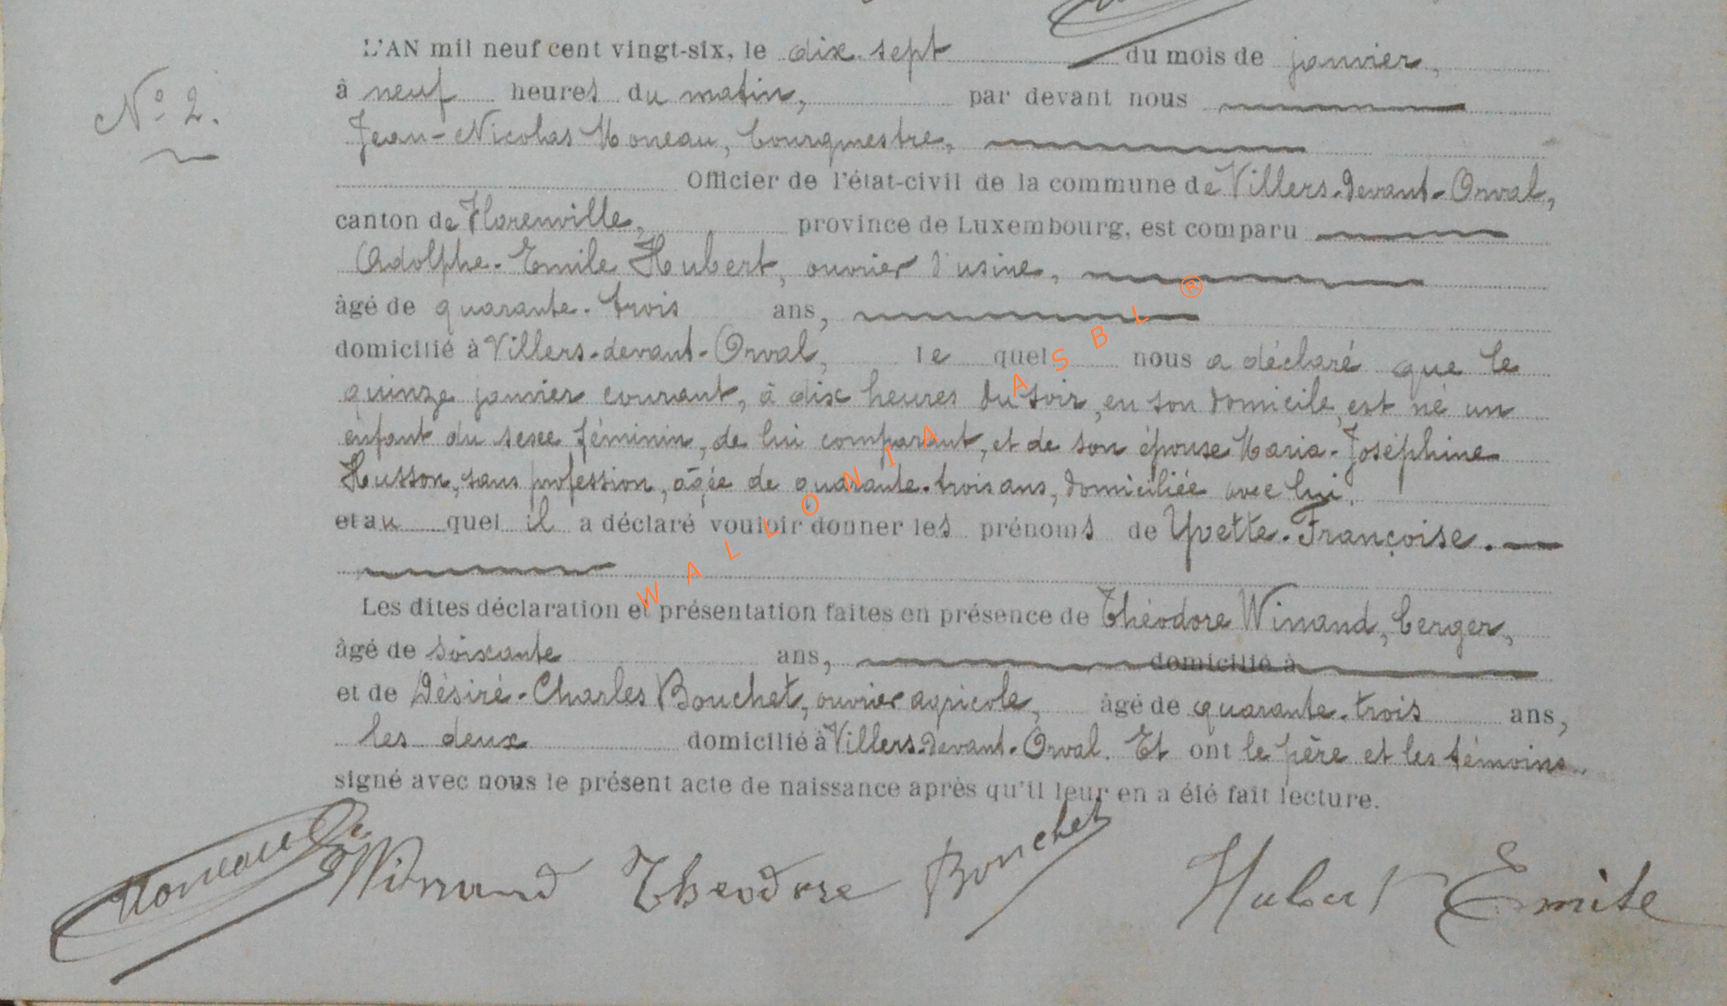 L'AN mil neuf cent vingt-six, le dix sept du mois de janvier,
N° 2.
à neuf heures du matin, par devant nous
Jean-Nicolas Moneau, bourgmestre,
Officier de l'état-civil de la commune de Villers-devant-Orval,
canton de Florenville, province de Luxembourg, est comparu
Adolphe-Emile Hubert, ouvrier d'usine,
âgé de quarante-trois ans,
domicilié à Villers-devant-Orval, le quel nous a déclaré que le
quinze janvier courant, à dix heures du soir, en son domicile, est né un
enfant du sexe féminin, de lui comparant, et de son épouse Maria-Joséphine
Husson, sans profession, âgée de quarante-trois ans, domiciliée avec lui,
et au quel il a déclaré vouloir donner les prénoms de Yvette-Françoise.
Les dites déclaration et présentation faites en présence de Théodore Winand, berger,
âgé de soixante ans, domicilié à
et de Désiré-Charles Bouchet, ouvrier agricole, âgé de quarante-trois ans,
les deux domicilié à Villers-devant-Orval. Et ont le père et les témoins
signé avec nous le présent acte de naissance après qu'il leur en a été fait lecture.
Moneau Winand Theodore Bouchet Hubert Emile
WALLONIA ASBL ®